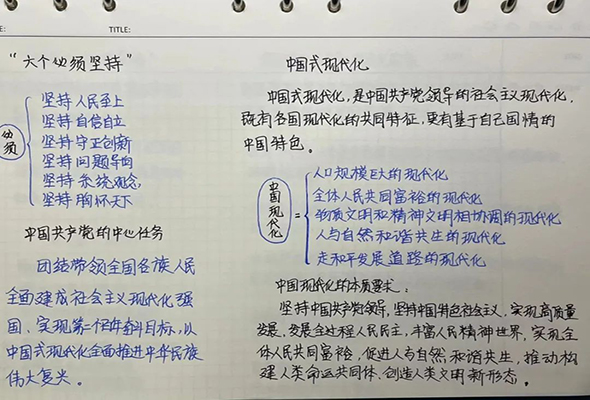 TITLE:
“六个必须坚持”
必须
坚持人民至上
坚持自信自立
坚持守正创新
坚持问题导向
坚持系统观念
坚持胸怀天下
中国共产党的中心任务
团结带领全国各族人民
全面建成社会主义现代化强
国、实现第二个百年奋斗目标,以
中国式现代化全面推进中华民族
伟大复兴。
中国式现代化
中国式现代化,是中国共产党领导的社会主义现代化,
既有各国现代化的共同特征,更有基于自己国情的
中国特色。
中国现代化
=
人口规模巨大的现代化
全体人民共同富裕的现代化
物质文明和精神文明相协调的现代化
人与自然和谐共生的现代化
走和平发展道路的现代化
中国现代化的本质要求:
坚持中国共产党领导,坚持中国特色社会主义,实现高质量
发展,发展全过程人民民主,丰富人民精神世界,实现全
体人民共同富裕,促进人与自然和谐共生,推动构
建人类命运共同体,创造人类文明新形态。